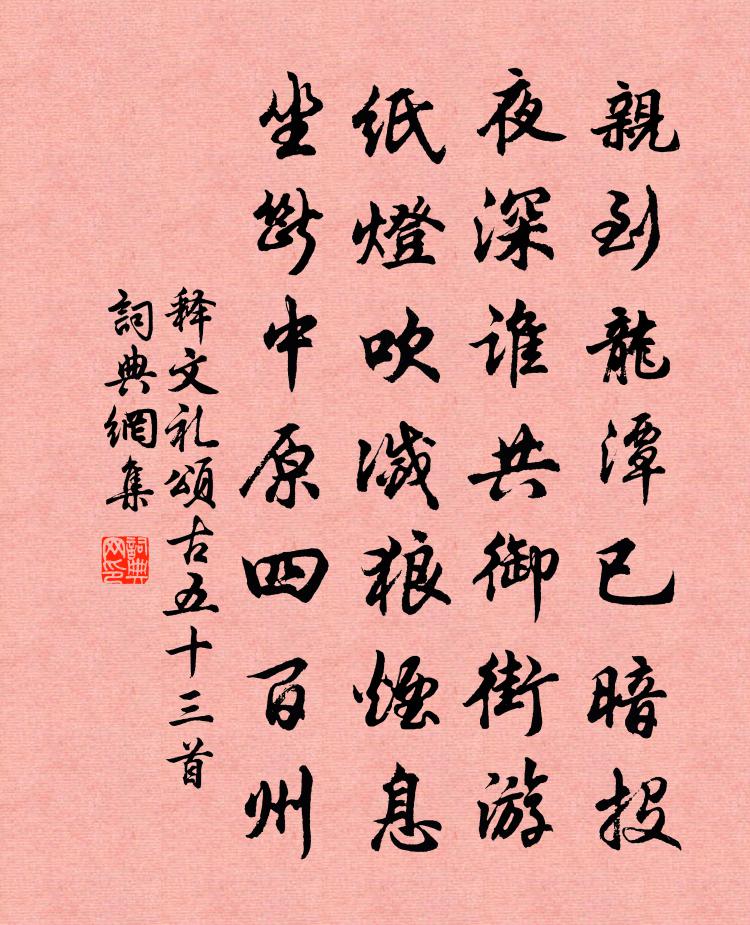 親到龍潭已暗投
夜深誰共御街游
紙燈吹滅狼煙息
坐斷中原四百州
释文礼頌古五十三首
詞典網集
詞典網印